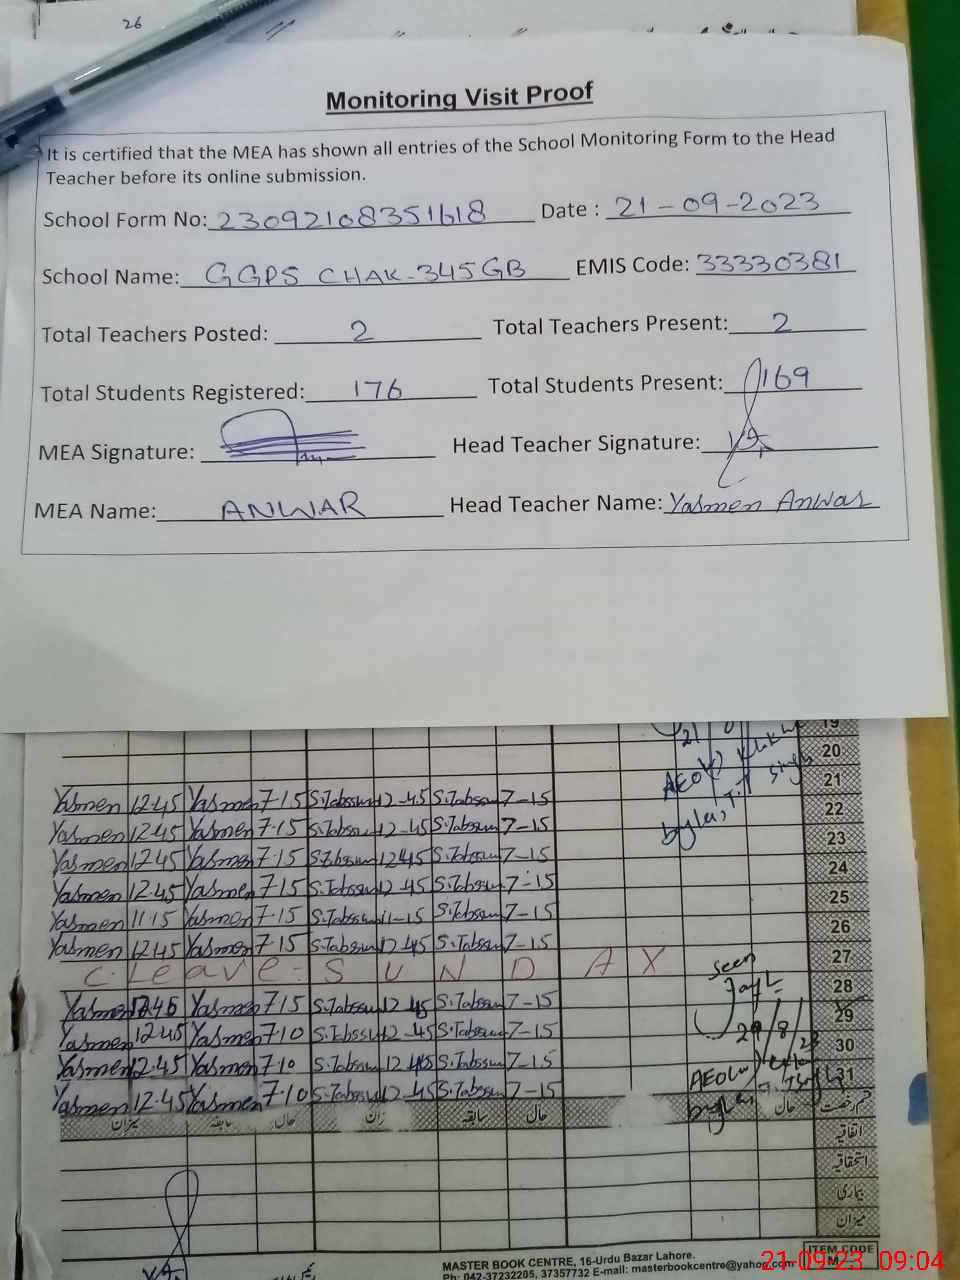 26
Monitoring Visit Proof
It is certified that the MEA has shown all entries of the School Monitoring Form to the Head
Teacher before its online submission.
School Form No: 23092108351618 Date : 21-09-2023
School Name: GGPS CHAK-345GB EMIS Code: 33330381
Total Teachers Posted: 2 Total Teachers Present: 2
Total Students Registered: 176 Total Students Present: 169
MEA Signature: Head Teacher Signature:
MEA Name: ANWAR Head Teacher Name: Yasmen Anwar
19
21 20
AEO 21
Yasmen 12.45 Yasmen 7-15 S.Tabssum 12-45 S.Tabssum 7-15 22
Yasmen 12.45 Yasmen 7.15 S.Tabssum 12-45 S.Tabssum 7-15 23
Yasmen 12.45 Yasmen 7.15 S.Tabssum 12.45 S.Tabssum 7-15 24
Yasmen 12.45 Yasmen 7-15 S.Tabssum 12.45 S.Tabssum 7-15 25
Yasmen 11.15 Yasmen 7.15 S.Tabssum 11-15 S.Tabssum 7-15 26
Yasmen 12.45 Yasmen 7.15 S.Tabssum 12.45 S.Tabssum 7-15
C. Leave - S U N D A Y seen 27
Yasmen 12.45 Yasmen 7.15 S.Tabssum 12.45 S.Tabssum 7-15 28
Yasmen 12.45 Yasmen 7.10 S.Tabssum 12-45 S.Tabssum 7-15 29/8/23 29
Yasmen 12.45 Yasmen 7.10 S.Tabssum 12.45 S.Tabssum 7-15 30
Yasmen 12.45 Yasmen 7.10 S.Tabssum 12-45 S.Tabssum 7-15 AEO 31
میزان سابقہ حال میزان سابقہ حال حال قسم رخصت
اتفاقیہ
استحقاقیہ
بیماری
میزان
MASTER BOOK CENTRE, 16-Urdu Bazar Lahore. ITEM CODE
Ph: 042-37232205, 37357732 E-mail: masterbookcentre@yahoo.com M
21-09-23 09:04